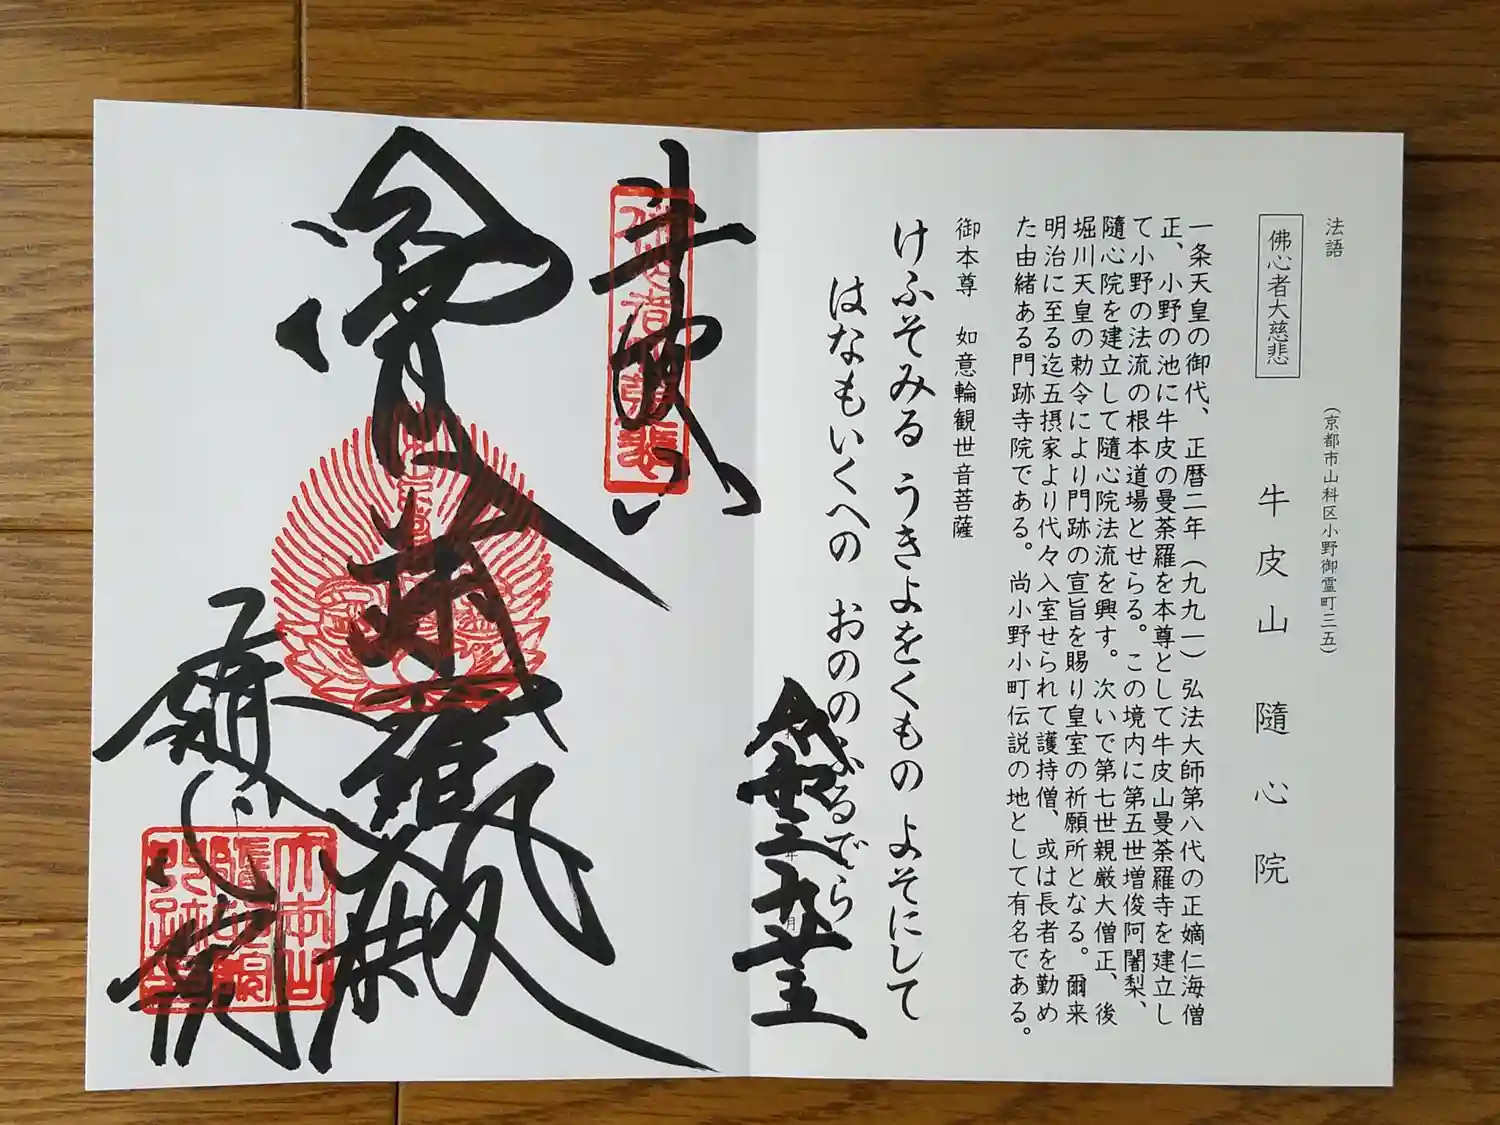 法語
(京都市山科区小野御霊町三五)
佛心者大慈悲
牛皮山 隨心院
一条天皇の御代、正暦二年(九九一)弘法大師第八代の正嫡仁海僧
正、小野の池に牛皮の曼荼羅を本尊として牛皮山曼荼羅寺を建立し
て小野の法流の根本道場とせらる。この境内に第五世増俊阿闍梨、
隨心院を建立して隨心院法流を興す。次いで第七世親厳大僧正、後
堀川天皇の勅令により門跡の宣旨を賜り皇室の祈願所となる。爾来
明治に至る迄五摂家より代々入室せられて護持僧、或は長者を勤め
た由緒ある門跡寺院である。尚小野小町伝説の地として有名である。
御本尊 如意輪観世音菩薩
けふそみる うきよをくもの よそにして
はなもいくへの おののふるでら
令和三年九月廿五
奉拝
佛心者大慈悲
曼荼羅殿
隨心院
大本山
隨心院
門跡